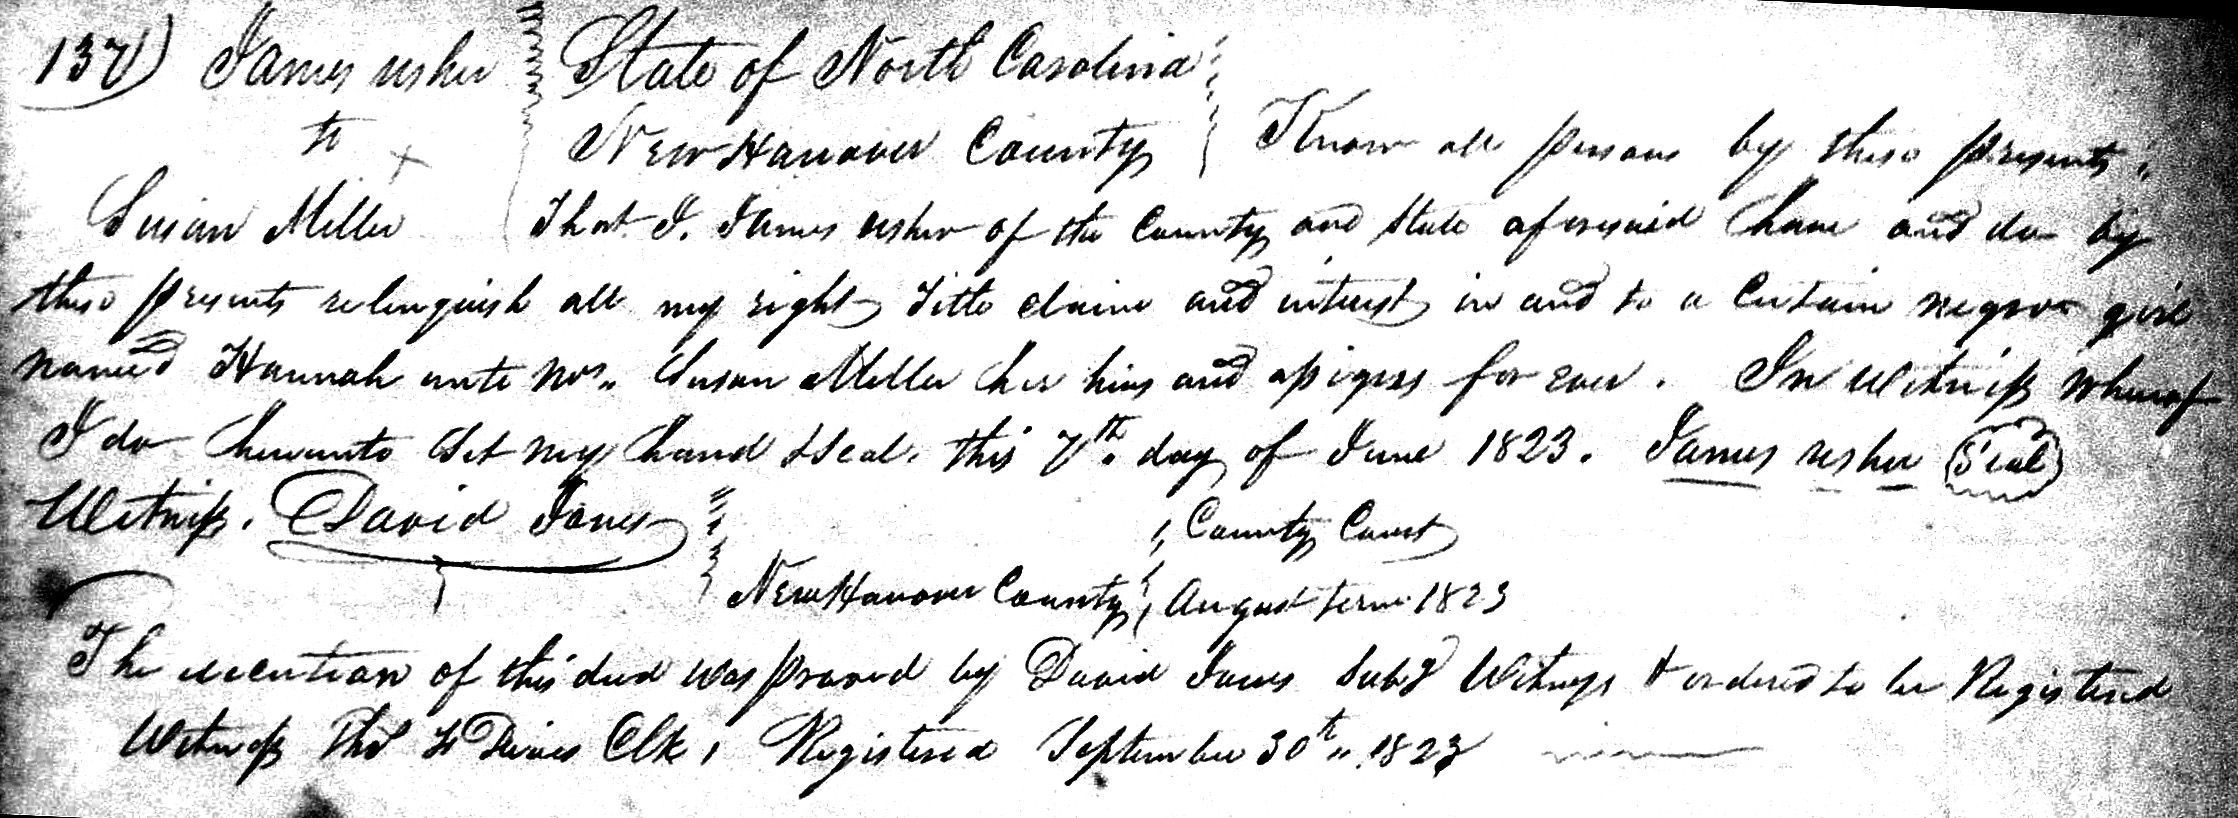 137) James usher State of North Carolina
to New Hanover County Know all persons by these presents
Susan Miller That I. James usher of the County and State aforesaid have and do by
these presents relinquish all my right Title claim and interest in and to a Certain negroe girl
named Hannah unto Mrs. Susan Miller her heirs and assigns for ever. In Witness whereof
I do hereunto Set my hand & Seal. this 7th. day of June 1823. James usher Seal
Witness. David Jones County Court
New Hanover County August term 1823
The execution of this deed was proved by David Jones Subg Witness & ordered to be Registered
Witness Thos F Davis Clk, Registered September 30th 1823